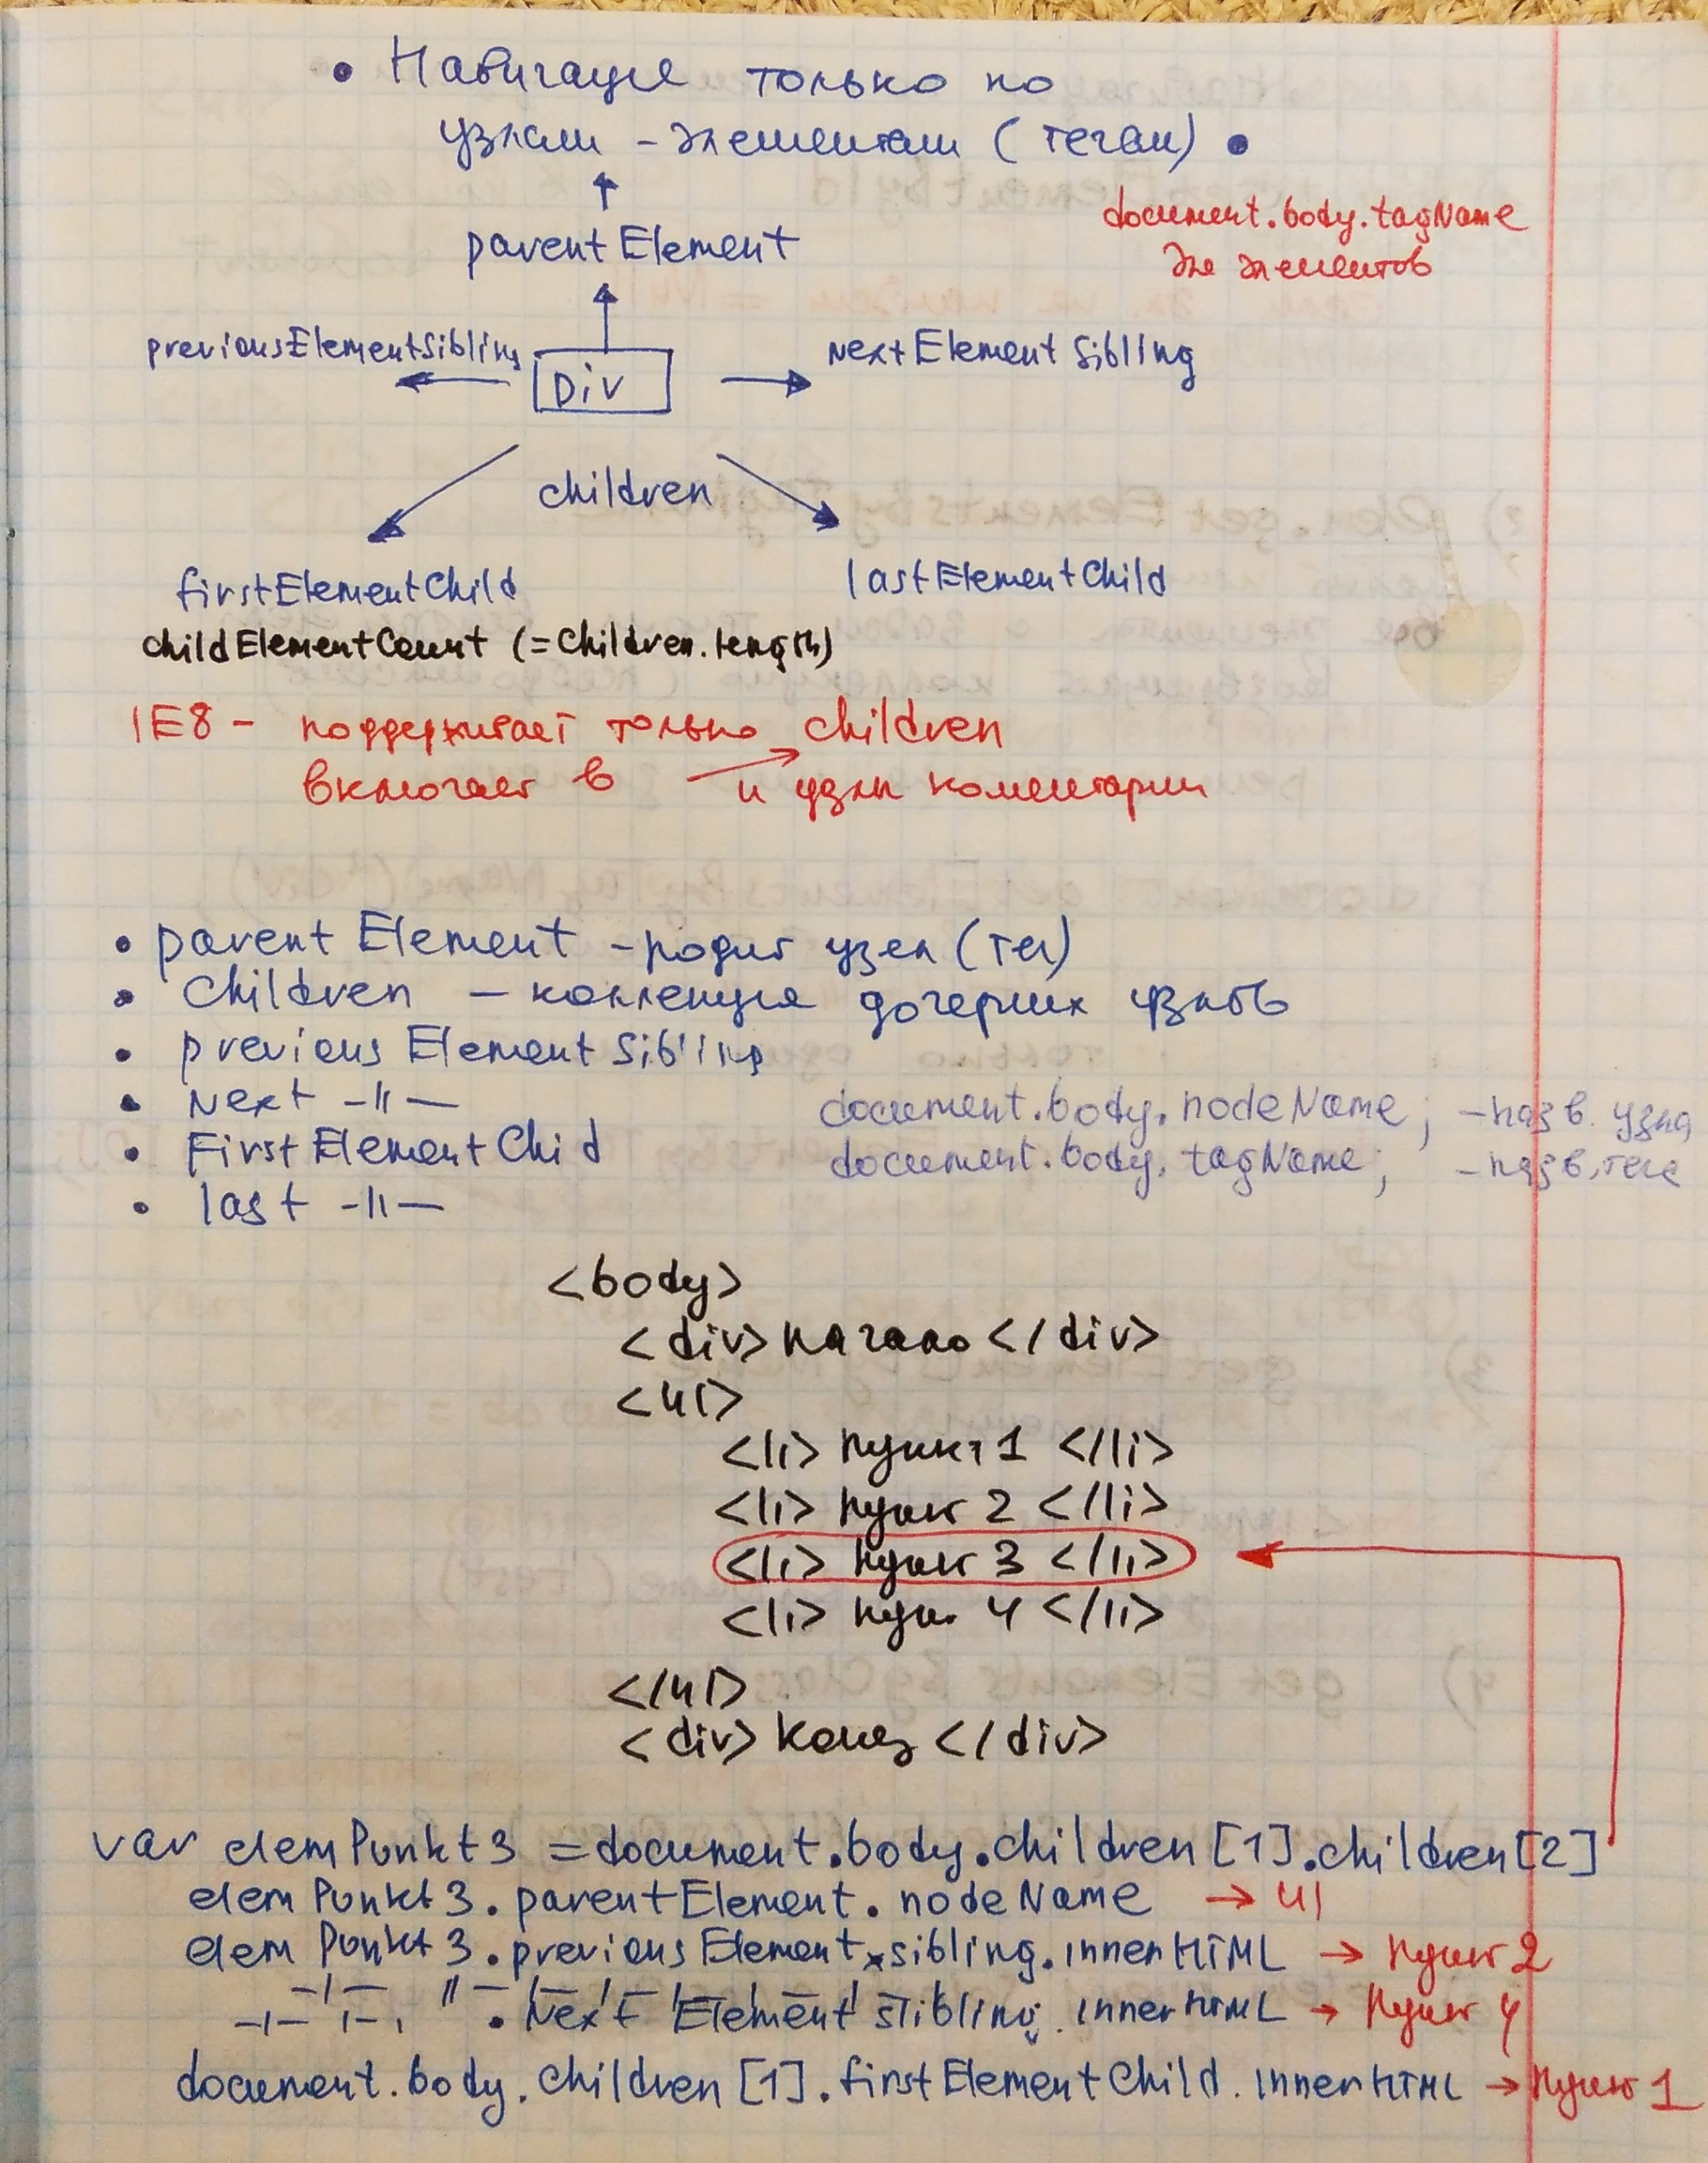 • Навигация только по
узлам - элементам (тегам) •
document.body.tagName
для элементов
parentElement
previousElementSibling
Div
nextElementSibling
children
firstElementChild
lastElementChild
childElementCount (=children.length)
IE8 - поддерживает только children
включает в и узлы коментарии
• parentElement - родит узел (тег)
• children - коллекция дочерних узлов
• previousElementSibling
• Next -||-
• FirstElementChid
• last -||-
document.body.nodeName; - назв. узла
document.body.tagName; - назв. тега
<body>
<div>начало</div>
<ul>
<li> пункт 1 </li>
<li> пункт 2 </li>
<li> пункт 3 </li>
<li> пун. 4 </li>
</ul>
<div> конец </div>
var elemPunkt3 = document.body.children[1].children[2]
elemPunkt3.parentElement.nodeName → ul
elemPunkt3.previousElementsibling.innerHTML → пункт 2
.Next Element sibling.innerHTML → пункт 4
document.body.children[1].firstElementChild.innerHTML → пункт 1